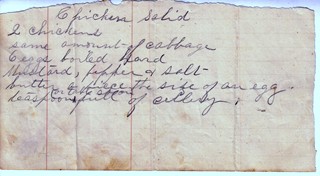 Chicken Solid
2 chickens
same amount of cabbage
6 eggs boiled hard
Mustard, pepper & salt
butter a piece the size of an egg.
teaspoon full of cellery,